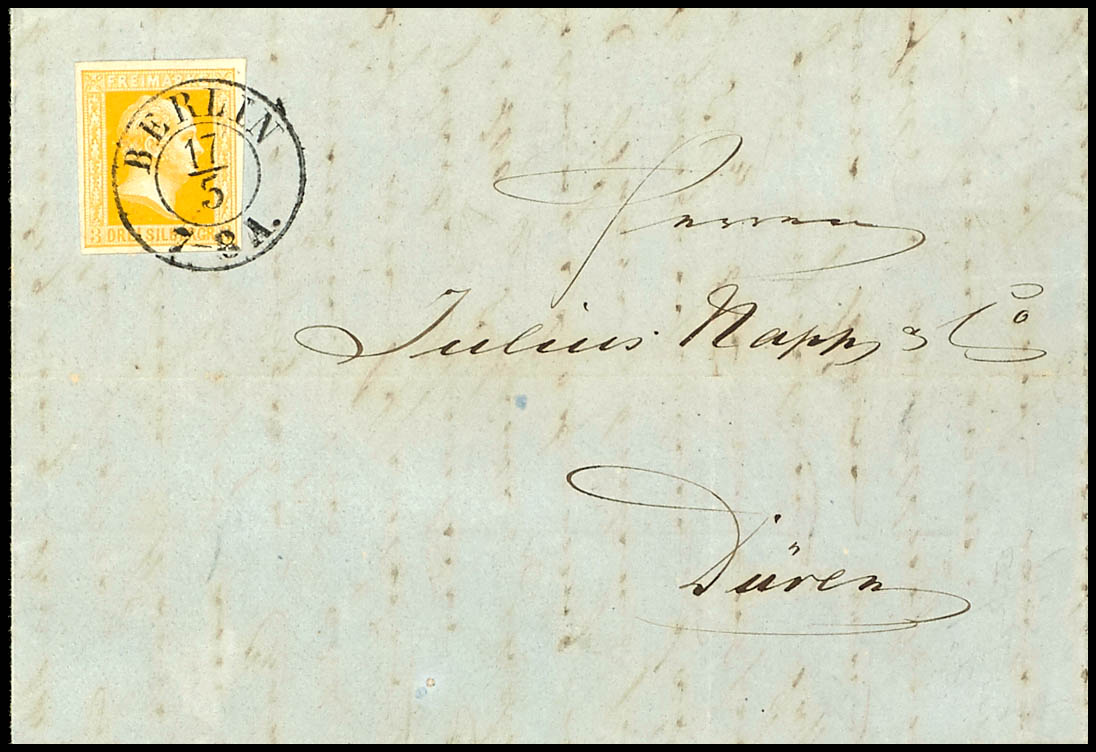 FREIMARKE
BERLIN
17
5
7-8 A.
3 DREI SILBERGR
Herren
Julius Napp & Co
Düren